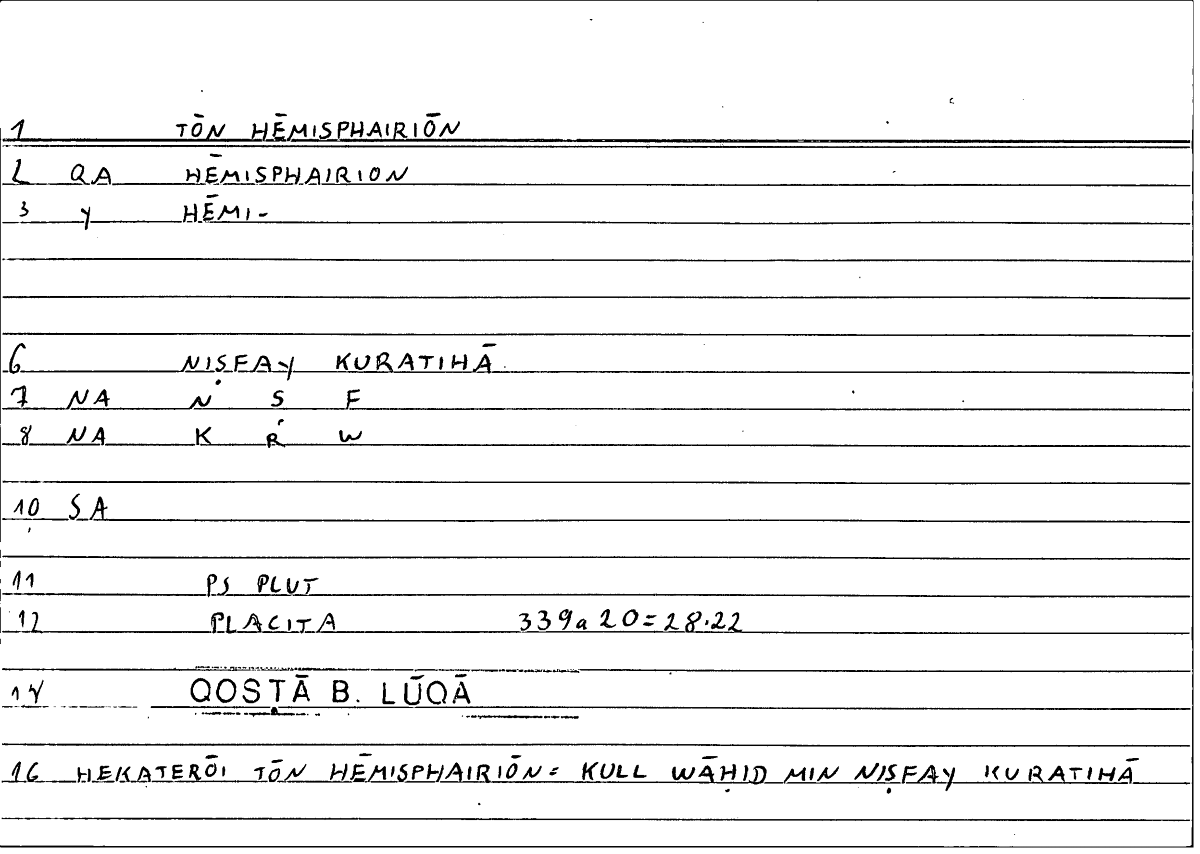 1 TŌN HĒMISPHAIRIŌN
2 QA HĒMISPHAIRION
3 Y HĒMI-
6 NIṢFAY KURATIHĀ
7 NA N Ṣ F
8 NA K R W
10 SA
11 PS PLUT
12 PLACITA 339a20=28.22
14 QOSṬĀ B. LŪQĀ
16 HEKATERŌI TŌN HĒMISPHAIRIŌN = KULL WĀḤID MIN NIṢFAY KURATIHĀ